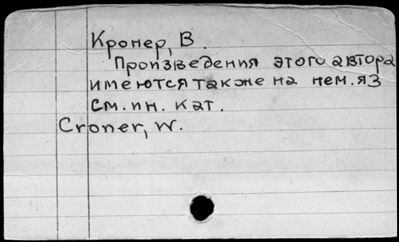 Кронер, В.
Произведения этого автора
имеются также на нем. яз
См. ин. кат.
Croner, W.